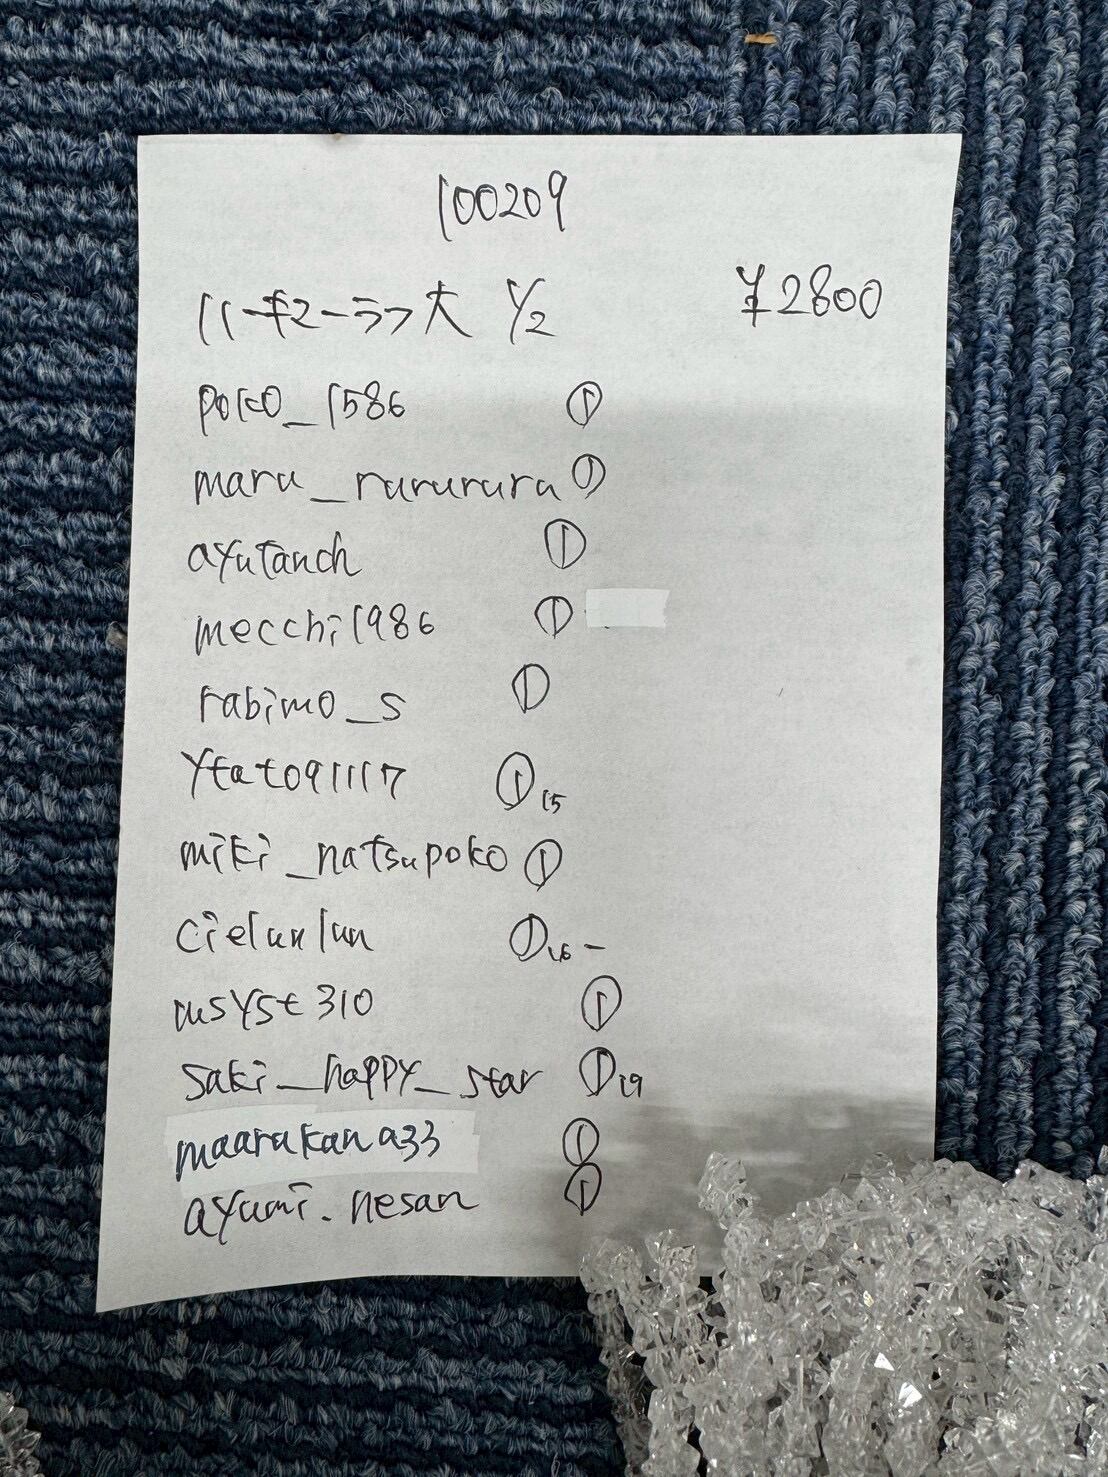 100209
ハーキマーラフ大 1/2 ¥2800
poko_1586 ①
maru_rurururu ①
ayutanch ①
mecchi1986 ①
rabimo_s ①
ytato91117 ① 15
miki_natsupoko ①
cielunlun ① 16 -
musyst310 ①
saki_happy_star ① 19
maarukana33 ①
ayumi.nesan ①